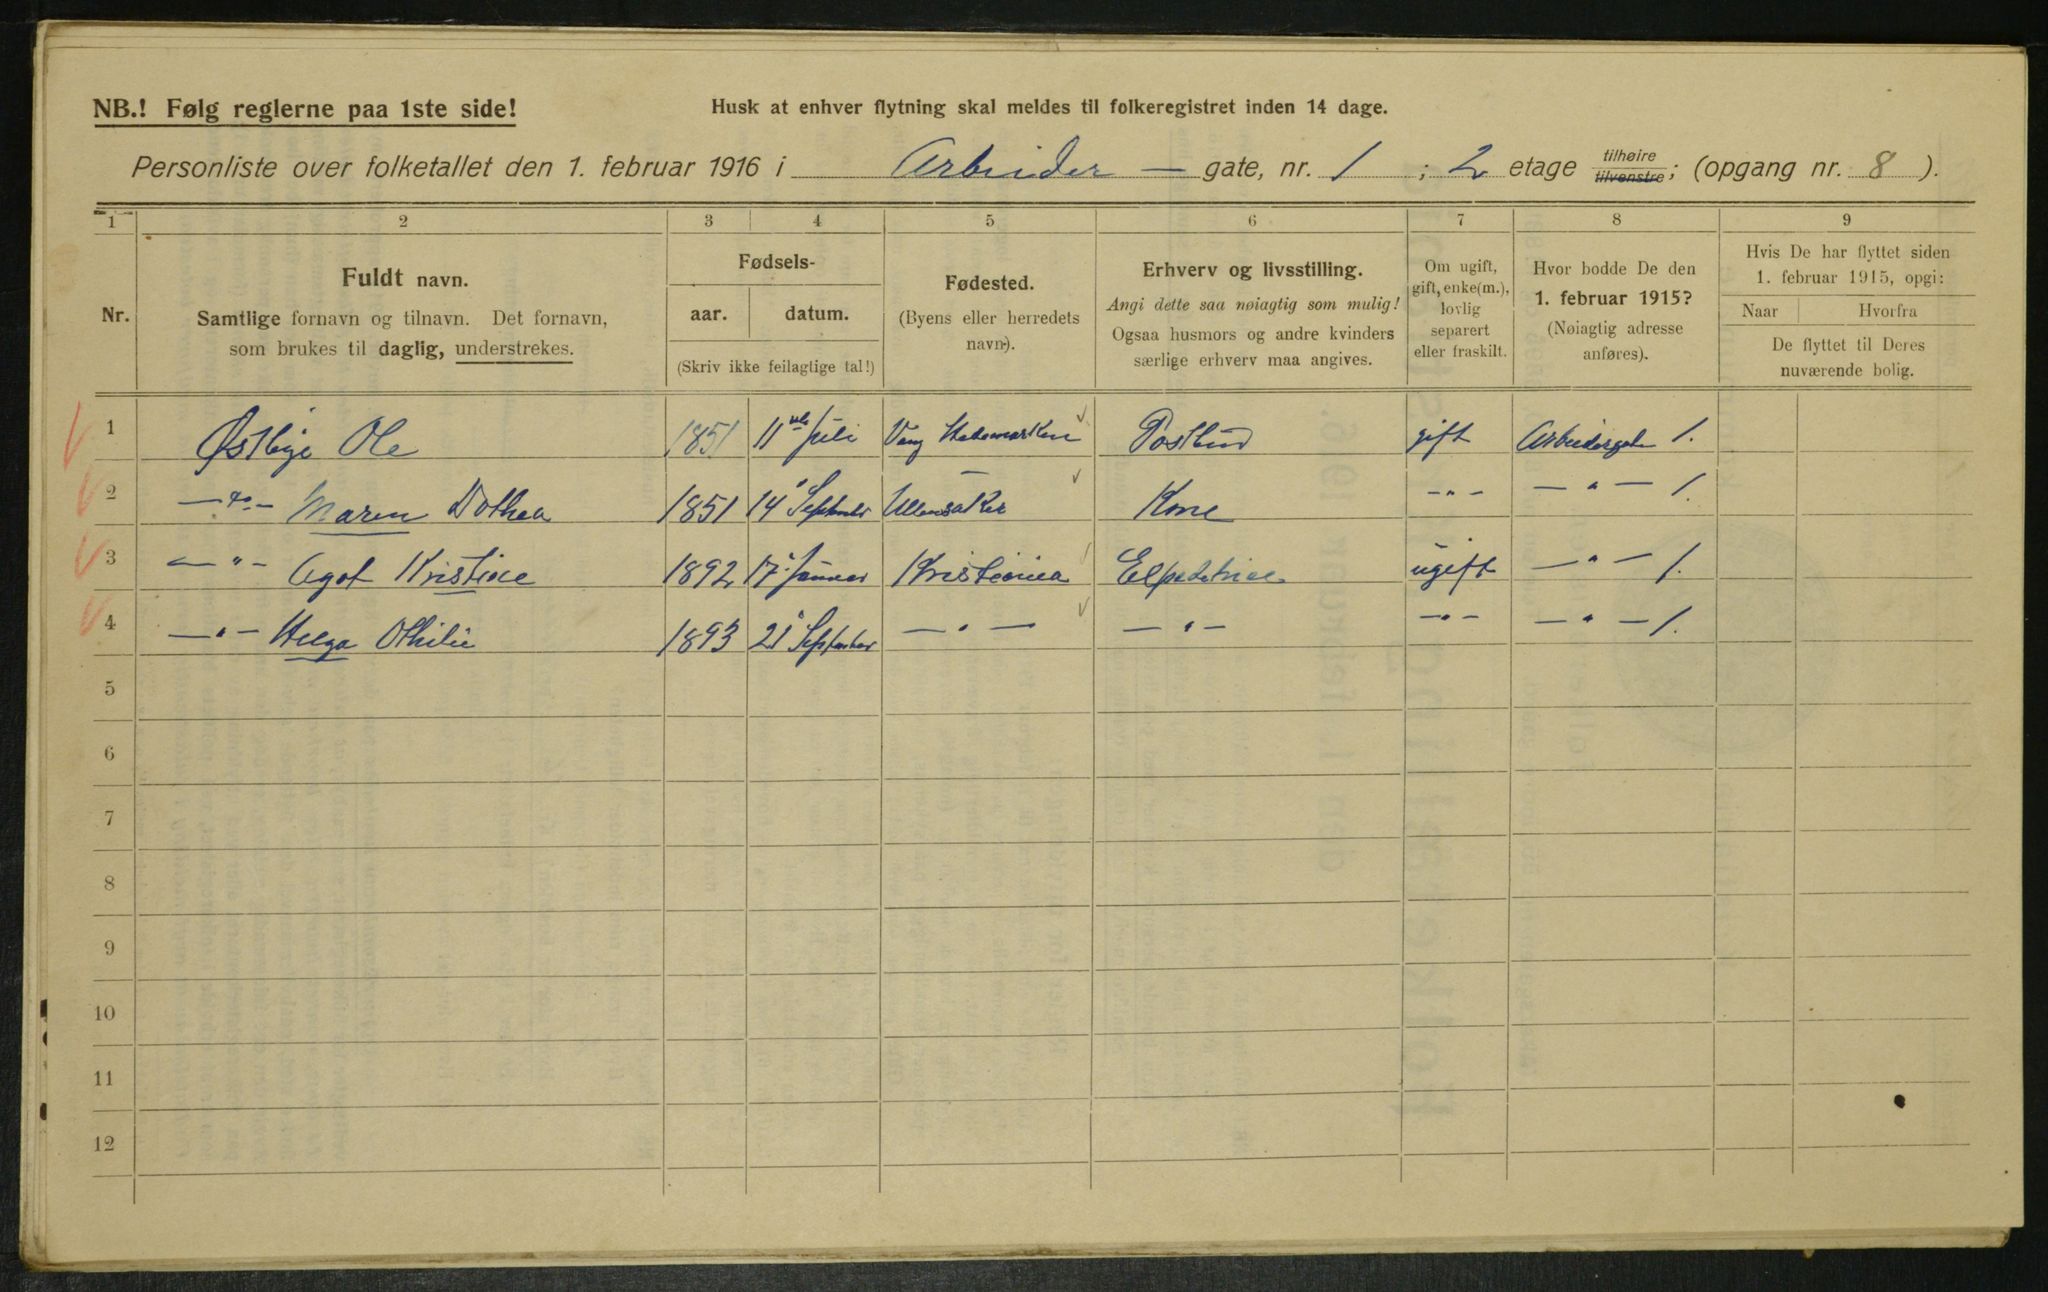 NB.! Følg reglerne paa 1ste side!
Husk at enhver flytning skal meldes til folkeregistret inden 14 dage.
Personliste over folketallet den 1. februar 1916 i Arbeider — gate, nr. 1 ; 2 etage tilhøire tilvenstre; (opgang nr. 8 ).
1 2 3 4 5 6 7 8 9
Nr.
Fuldt navn.
Samtlige fornavn og tilnavn. Det fornavn,
som brukes til daglig, understrekes.
Fødsels-
aar. datum.
(Skriv ikke feilagtige tal!)
Fødested.
(Byens eller herredets
navn).
Erhverv og livsstilling.
Angi dette saa nøiagtig som mulig!
Ogsaa husmors og andre kvinders
særlige erhverv maa angives.
Om ugift,
gift, enke(m.),
lovlig
separert
eller fraskilt.
Hvor bodde De den
1. februar 1915?
(Nøiagtig adresse
anføres).
Hvis De har flyttet siden
1. februar 1915, opgi:
Naar Hvorfra
De flyttet til Deres
nuværende bolig.
1 Østbye Ole 1851 11 Juli Vang Hedemarken Postbud gift Arbeidergaten 1.
2 — do — Maren Dothea 1851 14 September Ullensaker Kone — " — — " — 1.
3 — " — Agot Kristine 1892 17 Januar Kristiania Expeditrice ugift — " — 1.
4 — " — Helga Othilie 1893 21 September — " — — " — — " — — " — 1.
5
6
7
8
9
10
11
12